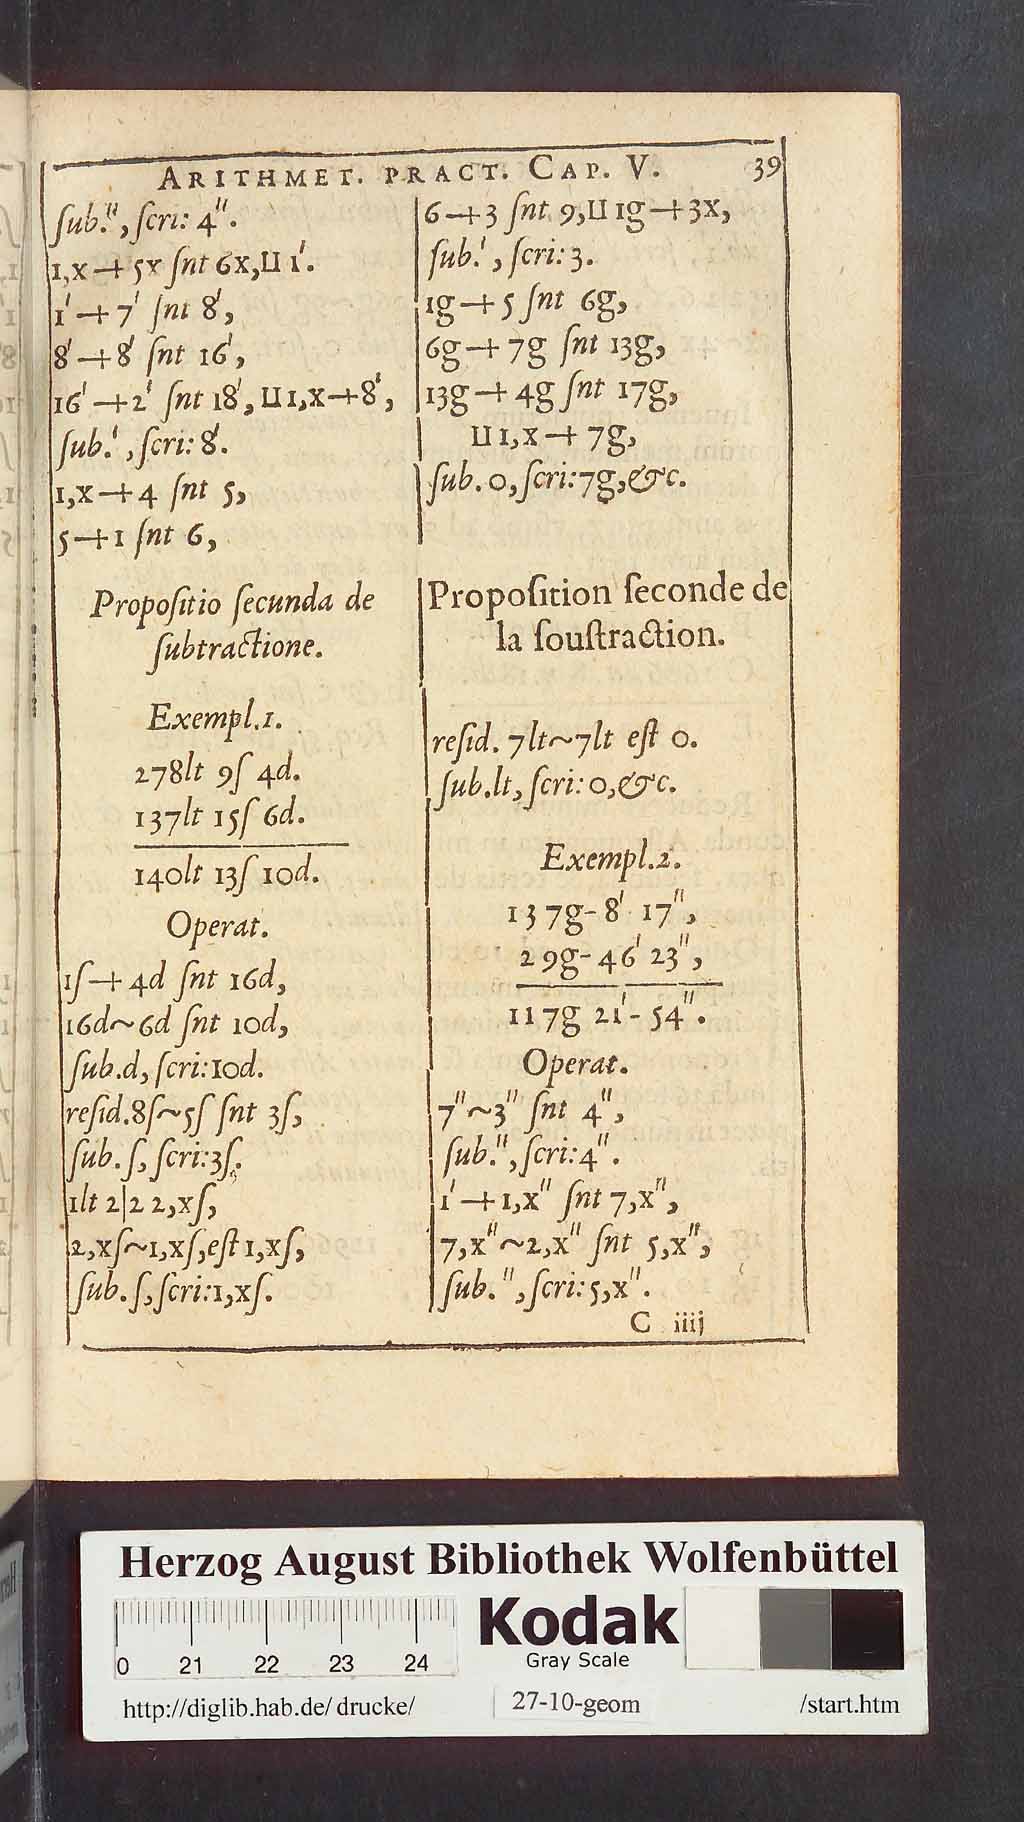 ARITHMET. PRACT. CAP. V. 39
ſub.'', ſcri: 4''.
1,x + 5x ſnt 6x, ⊔ 1'.
1' + 7' ſnt 8',
8' + 8' ſnt 16',
16' + 2' ſnt 18', ⊔ 1,x + 8',
ſub.', ſcri: 8'.
1,x + 4 ſnt 5,
5 + 1 ſnt 6,
6 + 3 ſnt 9, ⊔ 1g + 3x,
ſub.', ſcri: 3.
1g + 5 ſnt 6g,
6g + 7g ſnt 13g,
13g + 4g ſnt 17g,
⊔ 1,x + 7g,
ſub. 0, ſcri: 7g, &c.
Propoſitio ſecunda de
ſubtractione.
Propoſition ſeconde de
la ſouſtraction.
Exempl. 1.
278lt 9ſ 4d.
137lt 15ſ 6d.
140lt 13ſ 10d.
Operat.
1ſ + 4d ſnt 16d,
16d ~ 6d ſnt 10d,
ſub. d, ſcri: 10d.
reſid. 8ſ ~ 5ſ ſnt 3ſ,
ſub. ſ, ſcri: 3ſ.
1lt 2|2 2,xſ,
2,xſ ~ 1,xſ, eſt 1,xſ,
ſub. ſ, ſcri: 1,xſ.
reſid. 7lt ~ 7lt eſt 0.
ſub. lt, ſcri: 0, &c.
Exempl. 2.
137g- 8' 17'',
29g- 46' 23'',
117g 21'- 54''.
Operat.
7'' ~ 3'' ſnt 4'',
ſub.'', ſcri: 4''.
1' + 1,x'' ſnt 7,x'',
7,x'' ~ 2,x'' ſnt 5,x'',
ſub.'', ſcri: 5,x''.
C iiij
Herzog August Bibliothek Wolfenbüttel
0 21 22 23 24
Kodak
Gray Scale
http://diglib.hab.de/drucke/ 27-10-geom /start.htm